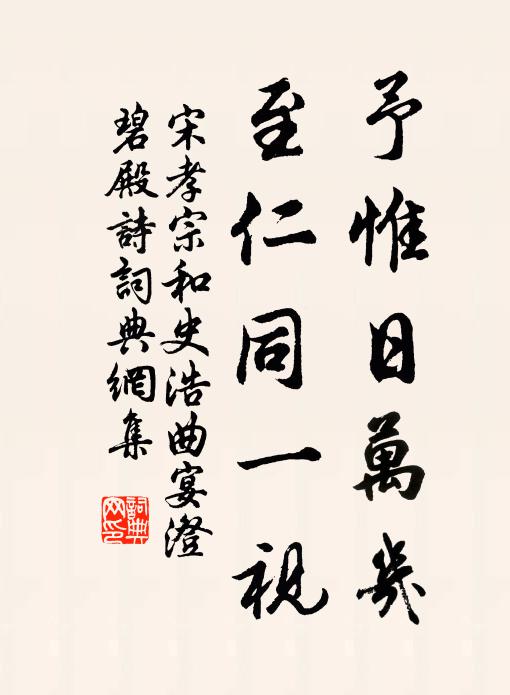 予惟日萬幾
至仁同一視
宋孝宗和史浩曲宴澄
碧殿詩詞典網集
詞典
网印